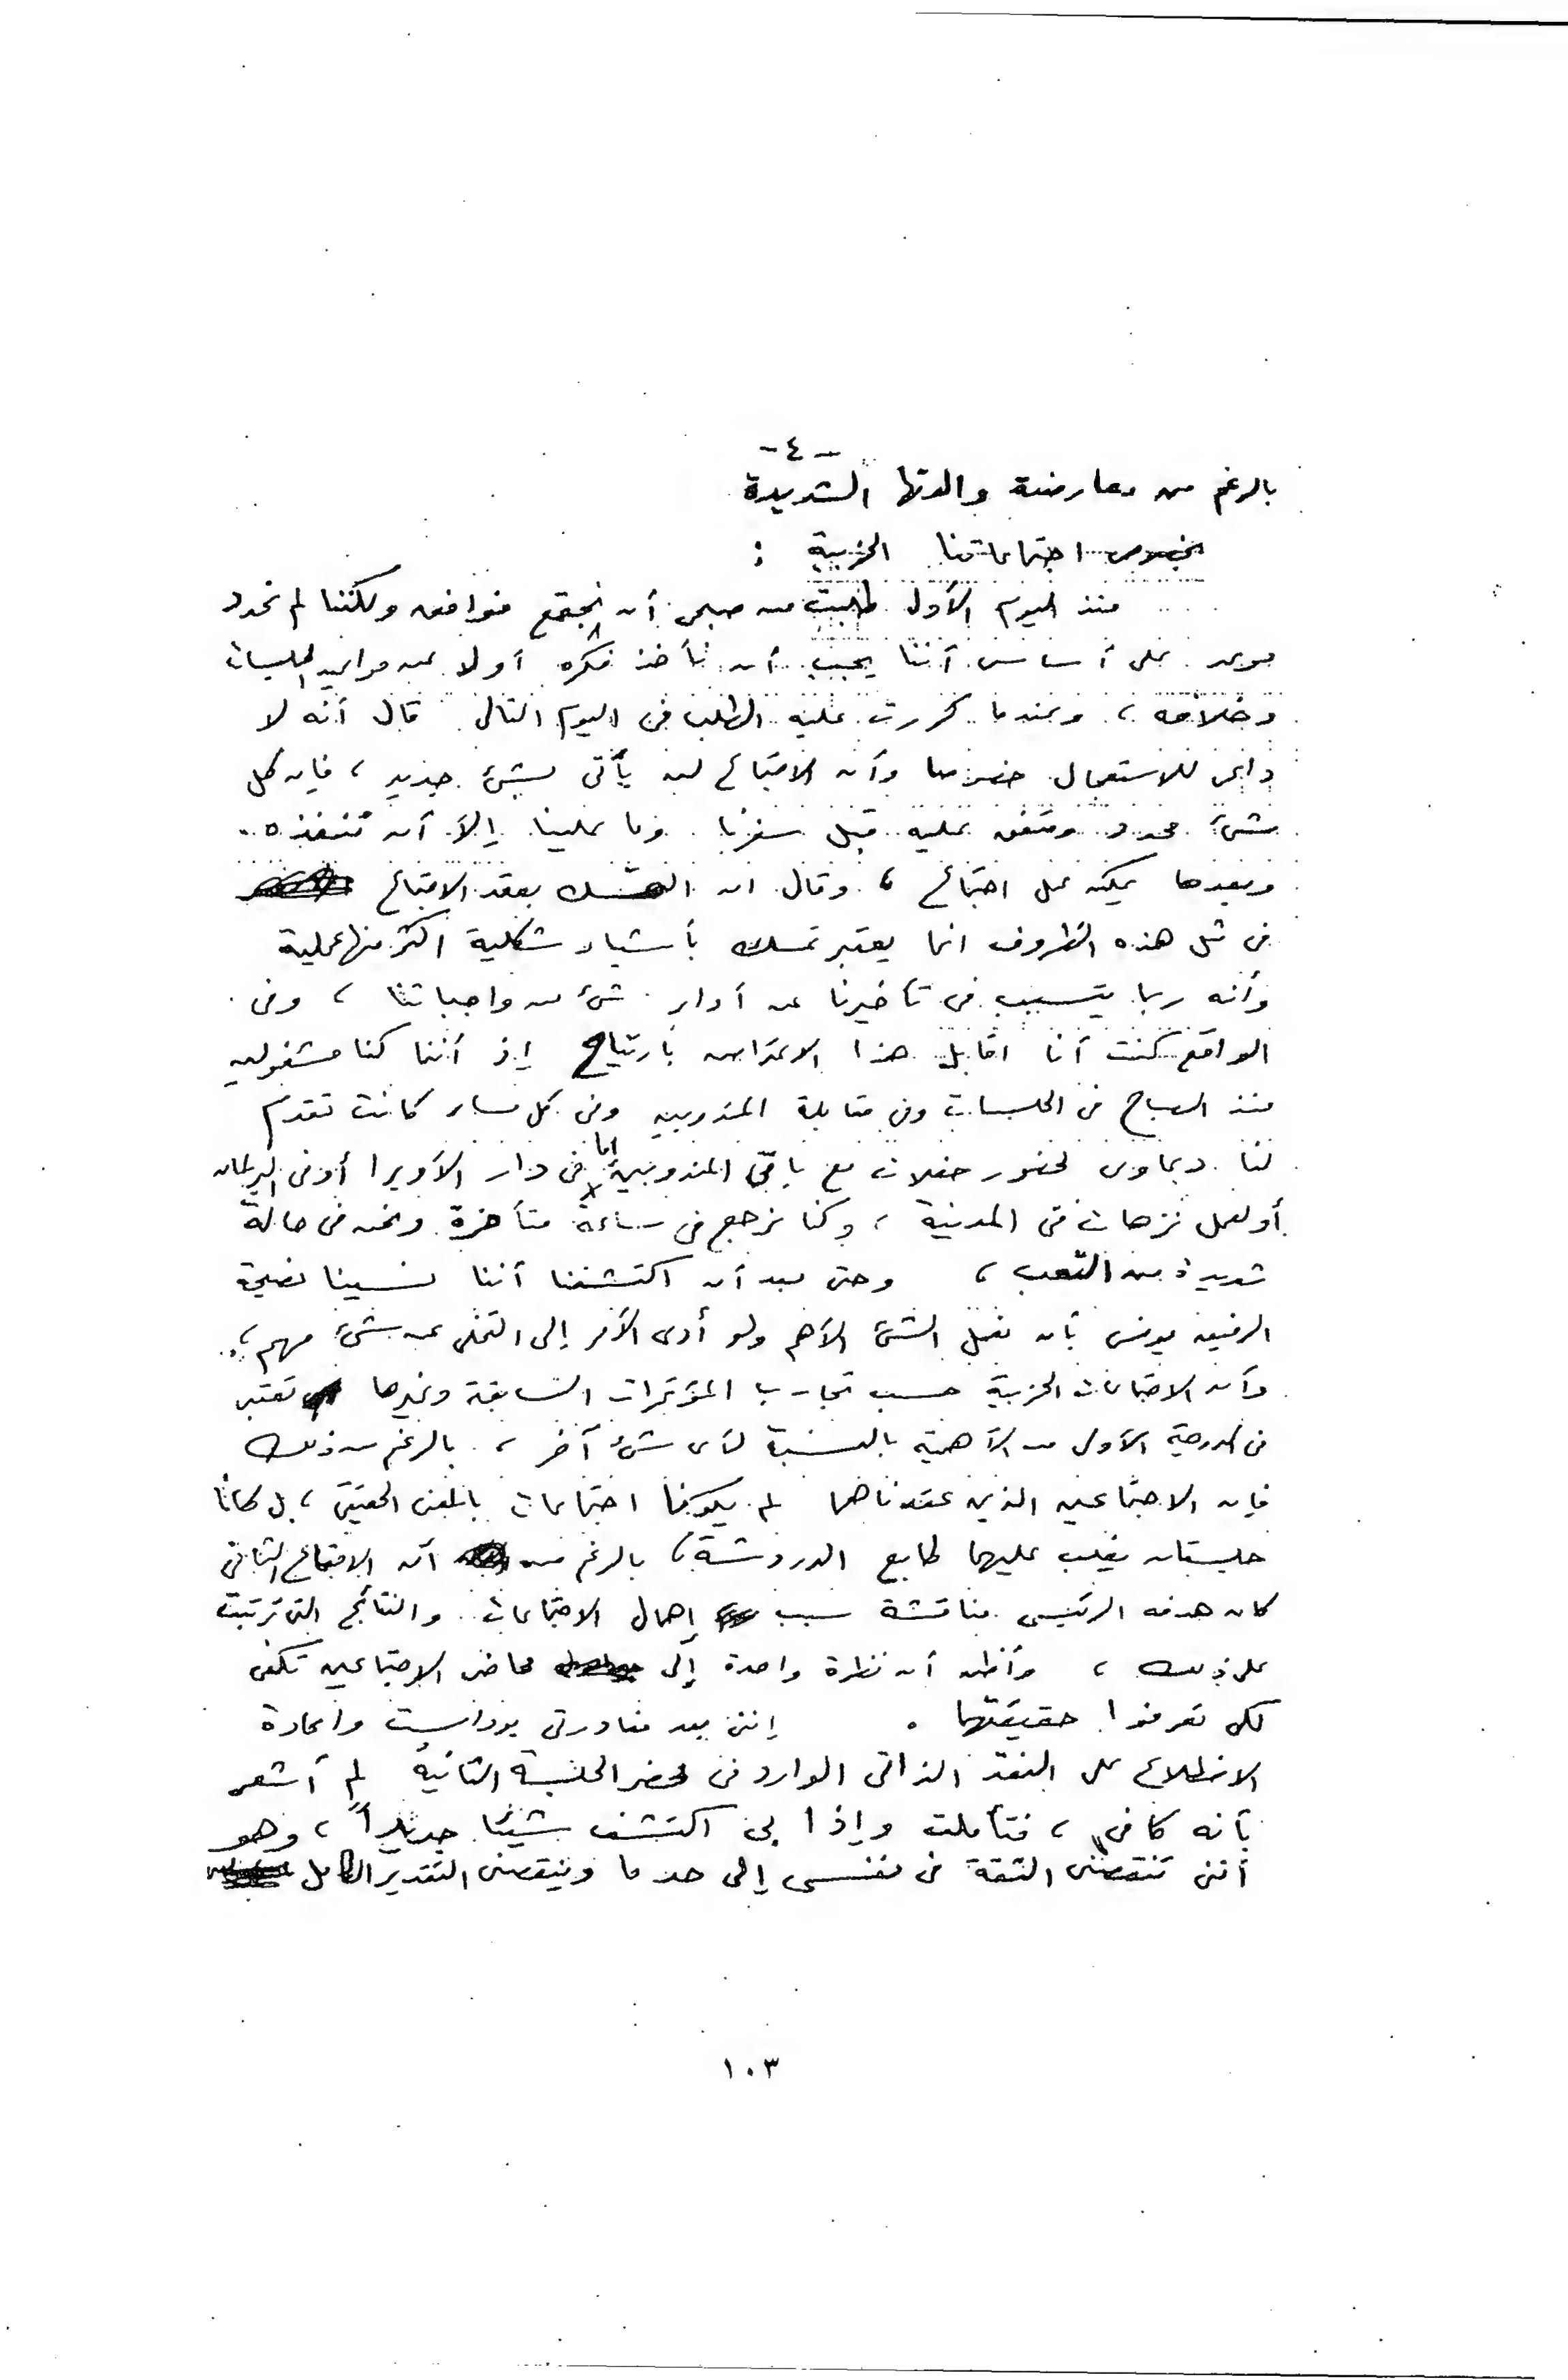 -٤-
بالرغم من معارضة والدتها الشديدة
بخصوص اجتماعاتنا الحزبية :
منذ اليوم الأول طلبت من صبحى أن نجتمع فوافق ولكننا لم نحدد
موعد على أساس أننا يجب أن نأخذ فكره أولا عن مواعيد الجلسات
وخلافه ، وعندما كررت عليه الطلب فى اليوم التالى قال أنه لا
داعى للاستعجال خصوصا وأن الاجتماع لن يأتى بشئ جديد ، فإن كل
شئ محدد ومتفق عليه قبل سفرنا وما علينا إلا أن ننفذه
وبعدها يمكن عمل اجتماع ، وقال ان التمسك بعقد الاجتماع
فى مثل هذه الظروف انما يعتبر تمسك بأشياء شكلية اكثر منها عملية
وأنه ربما يتسبب فى تأخيرنا عن أداء شئ من واجباتنا ، وفى
الواقع كنت أنا اقابل هذا الاعتراض بارتياح إذ أننا كنا مشغولين
منذ الصباح فى الجلسات وفى مقابلة المندوبين وفى كل مساء كانت تقدم
لنا دعاوى لحضور حفلات مع باقى المندوبين اما فى دار الأوبرا أو فى البرلمان
أو لعمل نزهات فى المدينة ، وكنا نرجع فى ساعة متأخرة ونحن فى حالة
شديدة من التعب ، وحتى بعد أن اكتشفنا أننا نسينا نصيحة
الرفيق يونس بأن نفعل الشئ الأهم ولو أدى الأمر إلى التخلى عن شئ مهم ،
وأن الاجتماعات الحزبية حسب تجارب المؤتمرات السابقة وغيرها تعتبر
فى الدرجة الأولى من الأهمية بالنسبة لأى شئ آخر ، بالرغم من ذلك
فإن الاجتماعين الذين عقدناهما لم يكونا اجتماعات بالمعنى الحقيقى ، بل كانتا
جلستان يغلب عليهما طابع الدردشة ، بالرغم من أن الاجتماع الثانى
كان هدفه الرئيسى مناقشة سبب إهمال الاجتماعات والنتائج التى ترتبت
على ذلك ، وأظن أن نظرة واحدة إلى محاضر الاجتماعين تكفى
لكى تعرفوا حقيقتهما . إننى بعد مغادرتى بودابست واعادة
الاطلاع على النقد الذاتى الوارد فى محضر الجلسة الثانية لم أشعر
بأنه كافى ، فتأملت وإذا بى اكتشف شيئا جديداً ، وهو
أننى تنقصنى الثقة فى نفسى إلى حد ما وينقصنى التقدير الكامل
١٠٣